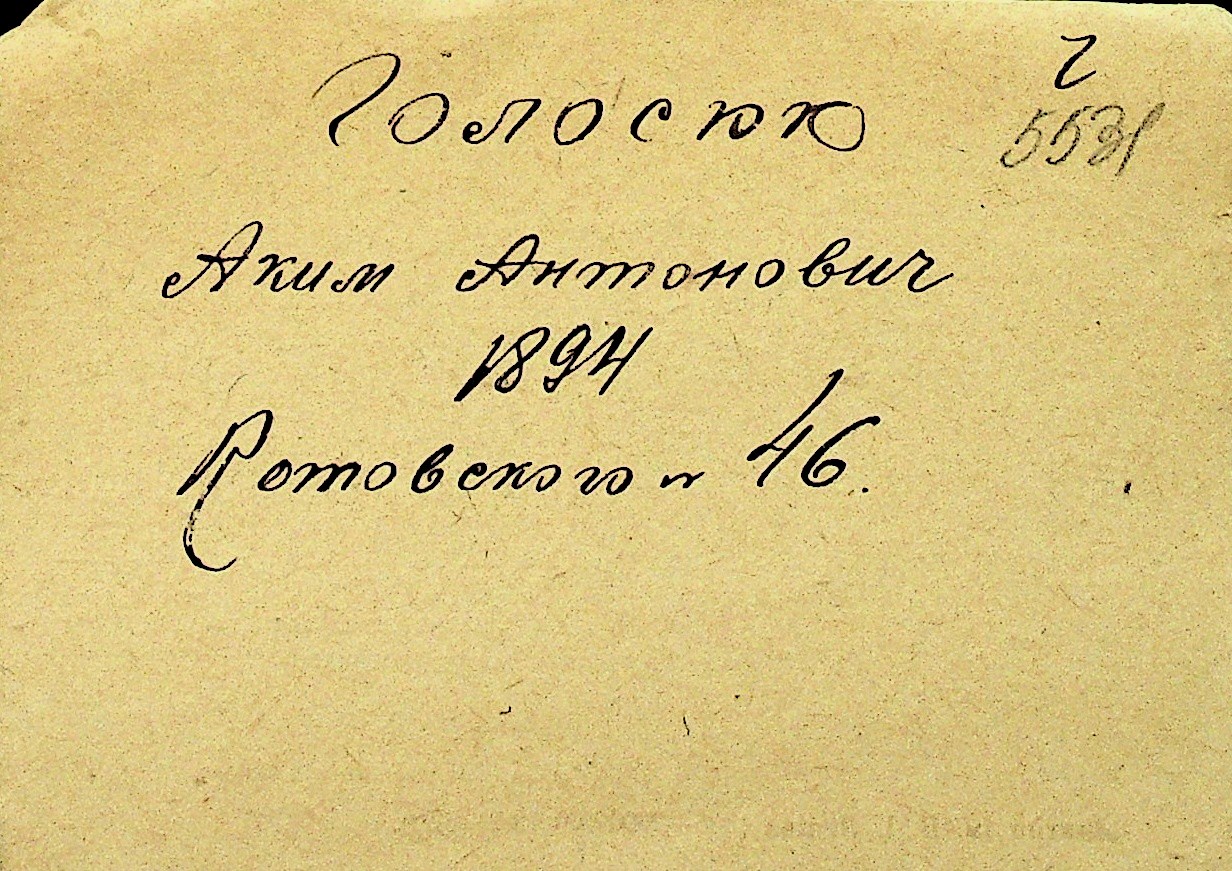 г
Голосюю
5531
Аким Антонович
1894
Котовского N 46.